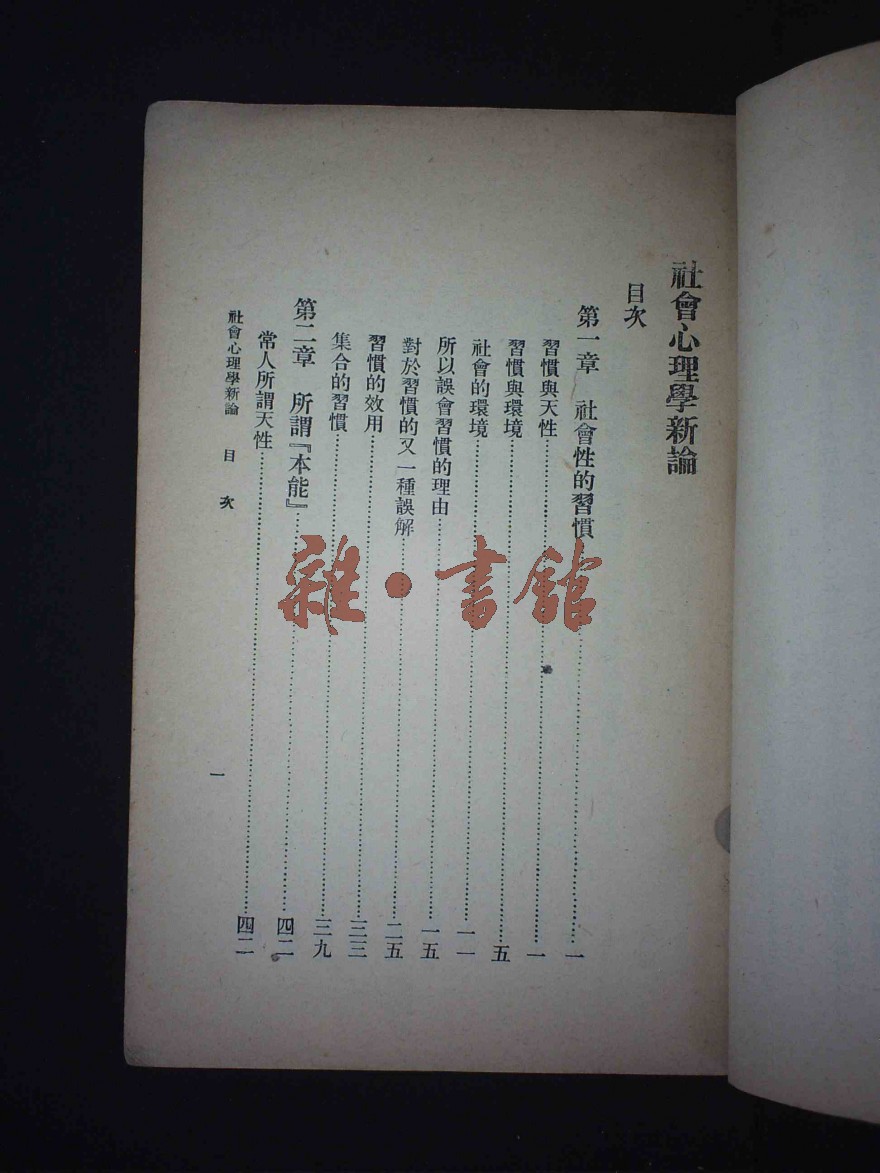 社會心理學新論
目次
第一章　社會性的習慣……一
習慣與天性……一
習慣與環境……五
社會的環境……一一
所以誤會習慣的理由……一五
對於習慣的又一種誤解……二五
習慣的效用……三三
集合的習慣……三九
第二章　所謂『本能』……四二
常人所謂天性……四二
社會心理學新論　目　次
一
雜·書館